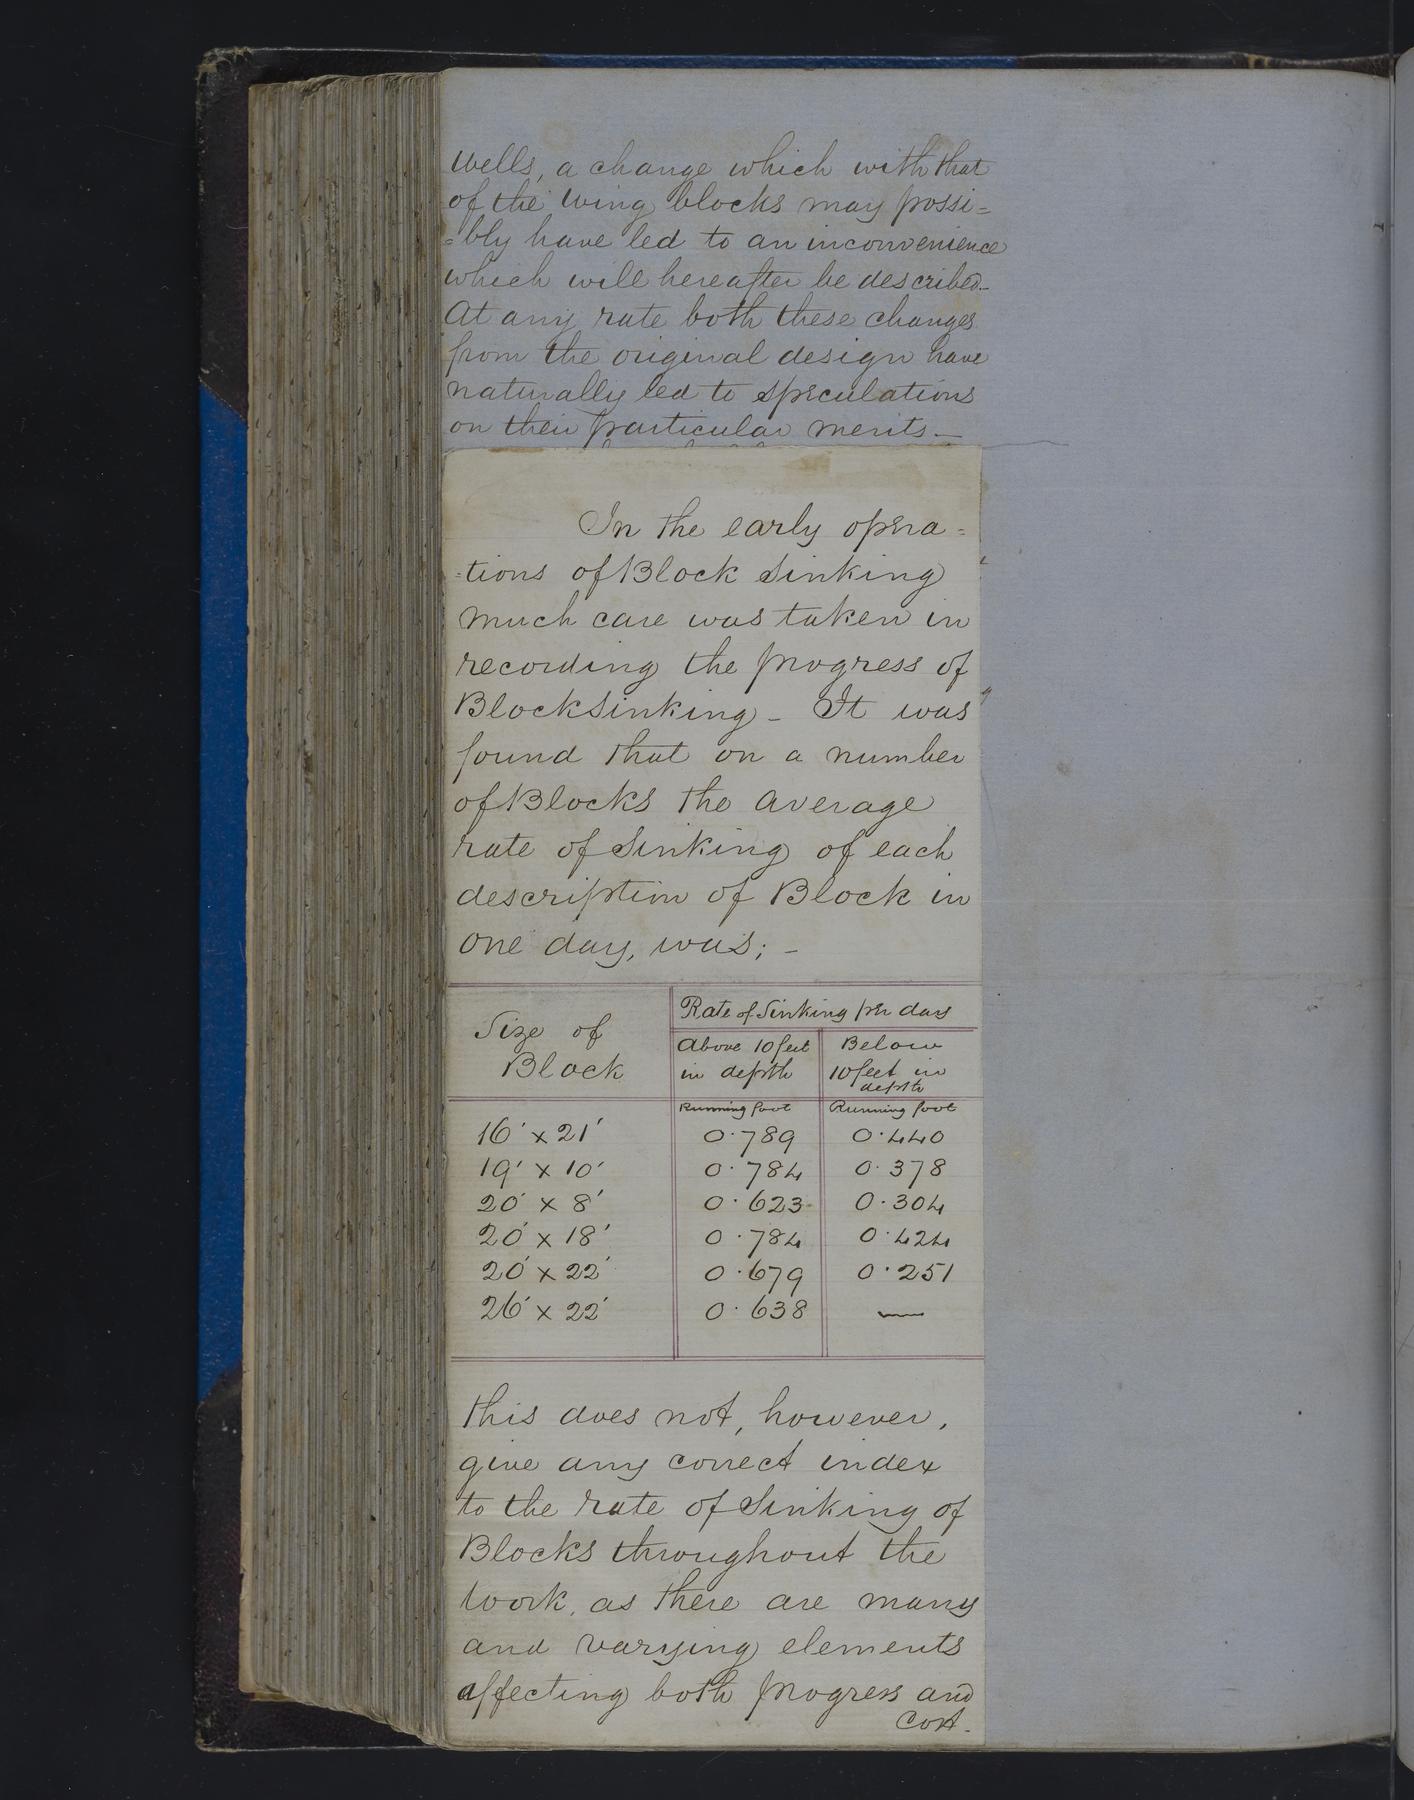 wells, a change which with that
of the wing blocks may possi=
=bly have led to an inconvenience
which will hereafter be described_
At any rate both these changes
from the original design have
naturally led to speculations
on their particular merits_
In the early opera=
=tions of Block Sinking
much care was taken in
recording the progress of
Blocksinking_ It was
found that on a number
of Blocks the average
rate of Sinking of each
description of Block in
one day, was;_
Size of
Block
Rate of Sinking per day
Above 10 feet
in depth
Below
10 feet in
depth
Running foot Running foot
16' x 21' 0.789 0.440
19' x 10' 0.784 0.378
20' x 8' 0.623 0.304
20' x 18' 0.784 0.424
20' x 22' 0.679 0.251
26' x 22' 0.638 —
this does not, however,
give any correct index
to the rate of Sinking of
Blocks throughout the
work, as there are many
and varying elements
affecting both progress and
cost.